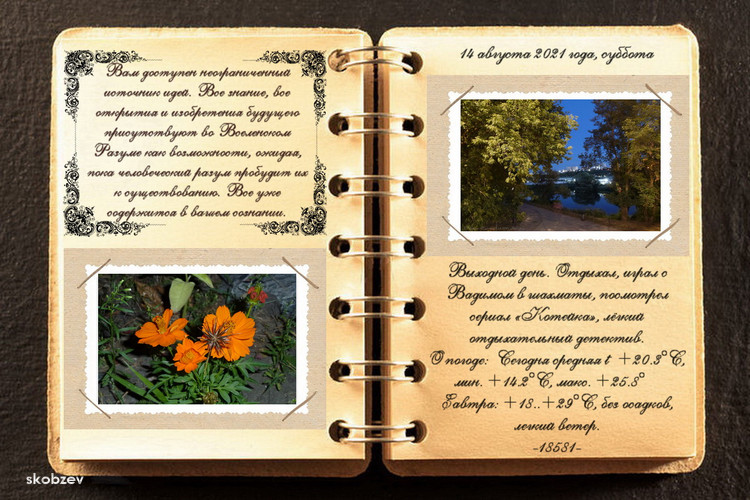 Вам доступен неограниченный
источник идей. Все знание, все
открытия и изобретения будущего
присутствуют во Вселенском
Разуме как возможности, ожидая,
пока человеческий разум пробудит их
к существованию. Все уже
содержится в вашем сознании.
14 августа 2021 года, суббота
Выходной день. Отдыхал, играл с
Вадимом в шахматы, посмотрел
сериал «Котейка», лёгкий
отдыхательный детектив.
О погоде: Сегодня средняя t +20.3°C,
мин. +14.2°C, макс. +25.8°
Завтра: +18..+29°C, без осадков,
легкий ветер.
-18581-
skobzev